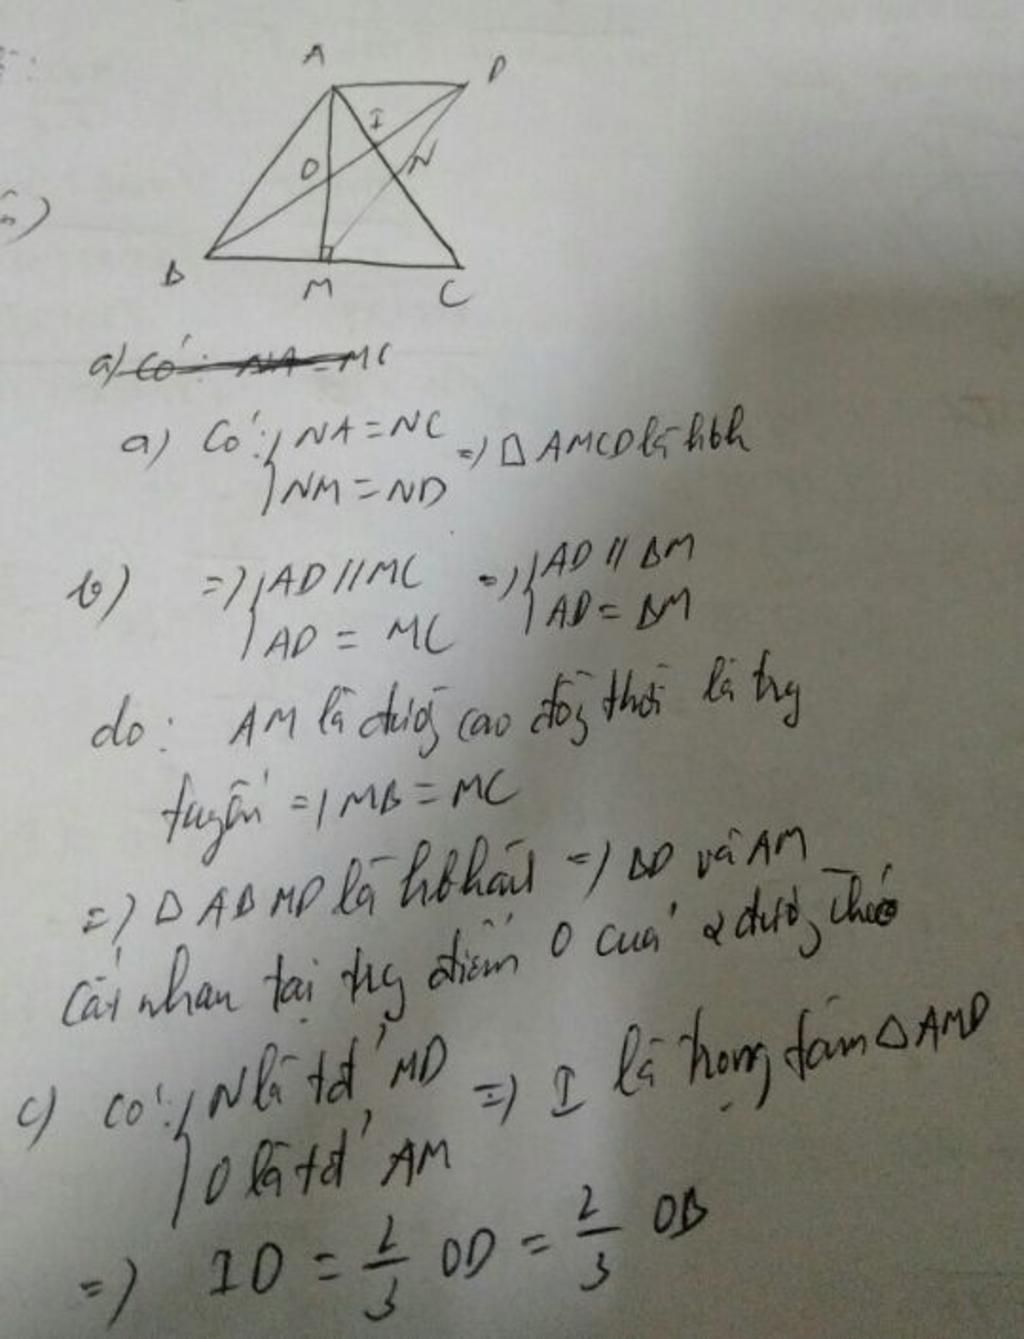 A D
I
O N
B M C
a) Có: NA = MC
a) Có: NA = NC => Δ AMCD là hbh
NM = ND
b) => AD // MC => AD // BM
AD = MC AD = BM
do: AM là đường cao đồng thời là trg
tuyến => MB = MC
=> Δ ABMD là hbhàh => BD và AM
cắt nhau tại trg điểm O của 2 đường chéo
c) Có: N là tđ' MD => I là trọng tâm Δ AMD
O là tđ' AM
=> ID = 2/3 OD = 2/3 OB